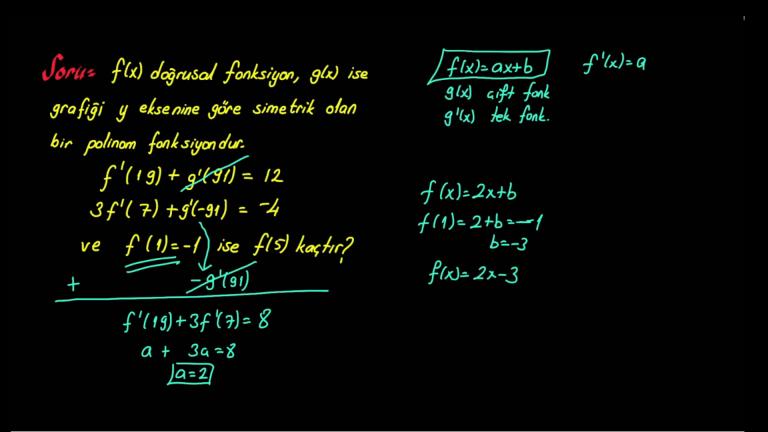 Soru= f(x) doğrusal fonksiyon, g(x) ise
grafiği y eksenine göre simetrik olan
bir polinom fonksiyondur.
f'(19) + g'(91) = 12
3f'(7) + g'(-91) = -4
ve f'(1) = -1 ise f(5) kaçtır?
+ -g'(91)
f'(19) + 3f'(7) = 8
a + 3a = 8
a = 2
f(x) = ax+b f'(x) = a
g(x) çift fonk
g'(x) tek fonk.
f(x) = 2x+b
f(1) = 2+b = -1
b = -3
f(x) = 2x-3